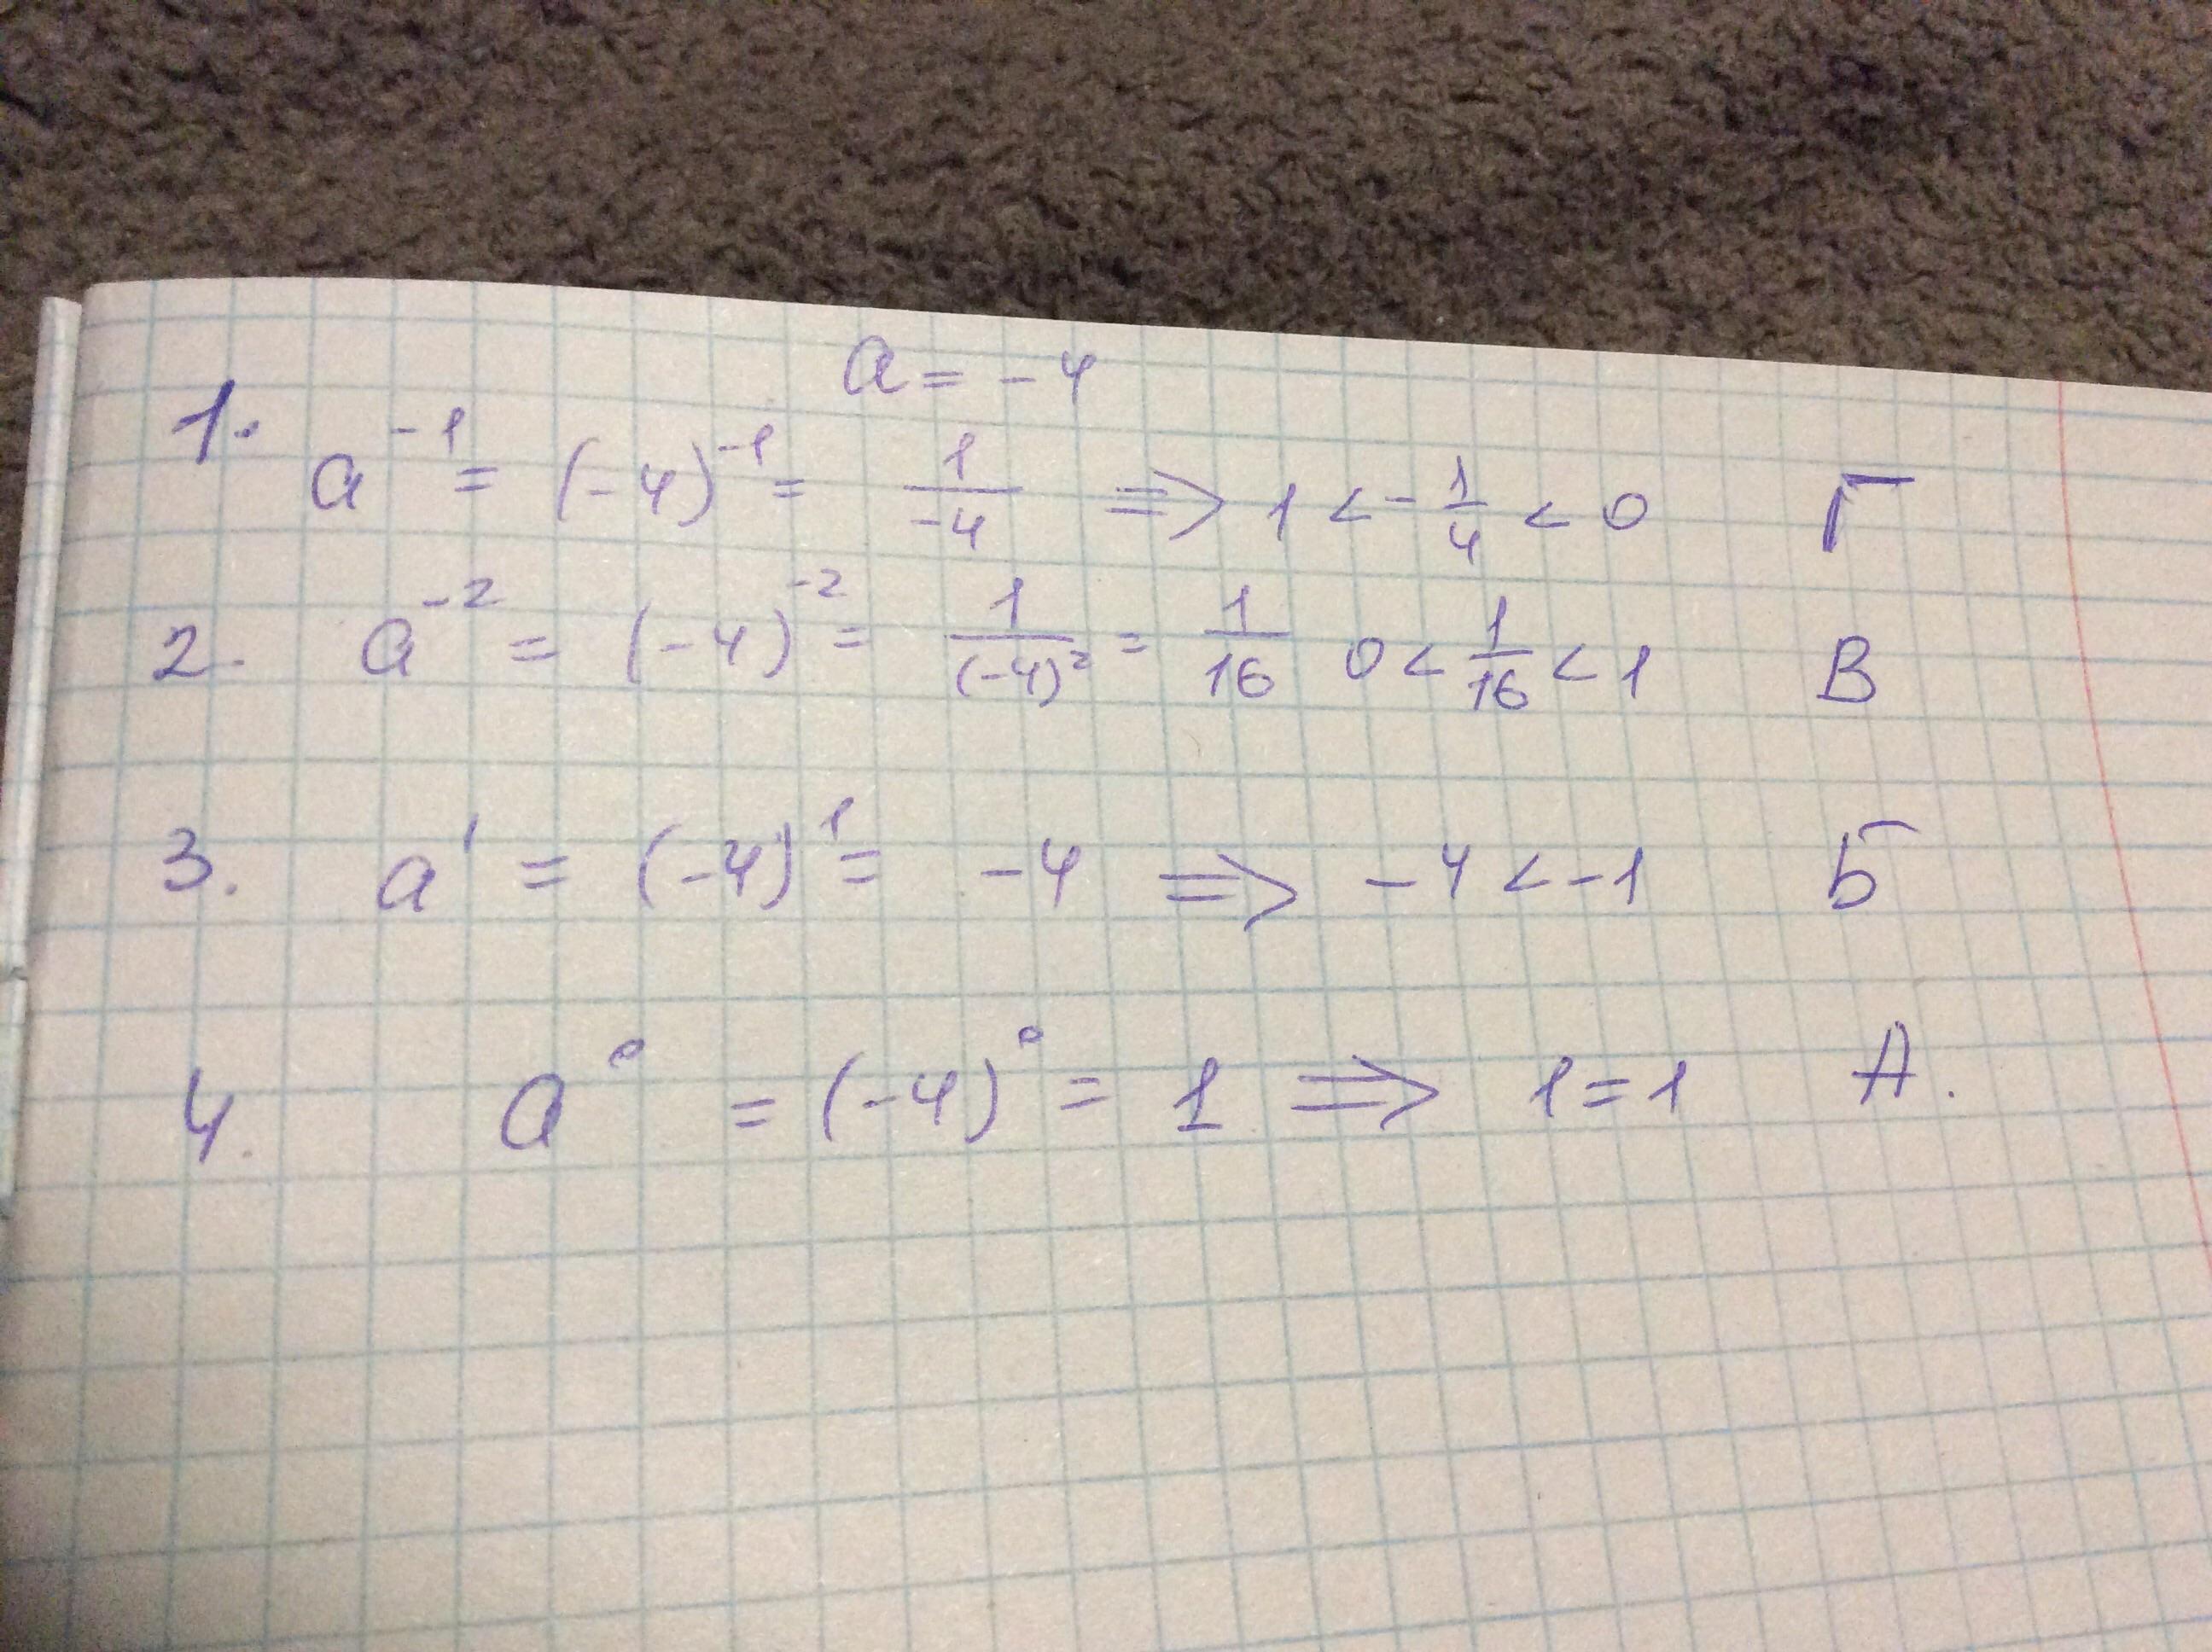 a = -4
1. a⁻¹ = (-4)⁻¹ = 1/-4 ⇒ 1 < -1/4 < 0 Г
2. a⁻² = (-4)⁻² = 1/(-4)² = 1/16 0 < 1/16 < 1 В
3. a¹ = (-4)¹ = -4 ⇒ -4 < -1 Б
4. a⁰ = (-4)⁰ = 1 ⇒ 1 = 1 А.